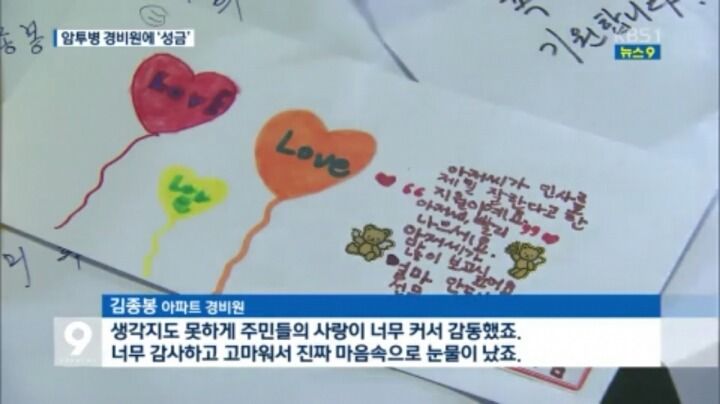 기원합니다!
KBS1
뉴스9
암투병 경비원에 '성금'
Love
Love
Love
아저씨가 인사를
제일 잘한다고 한
아저씨, 빨리
나으세요.
아저씨가
많이 보고싶
김종봉 아파트 경비원
9
생각지도 못하게 주민들의 사랑이 너무 커서 감동했죠.
너무 감사하고 고마워서 진짜 마음속으로 눈물이 났죠.